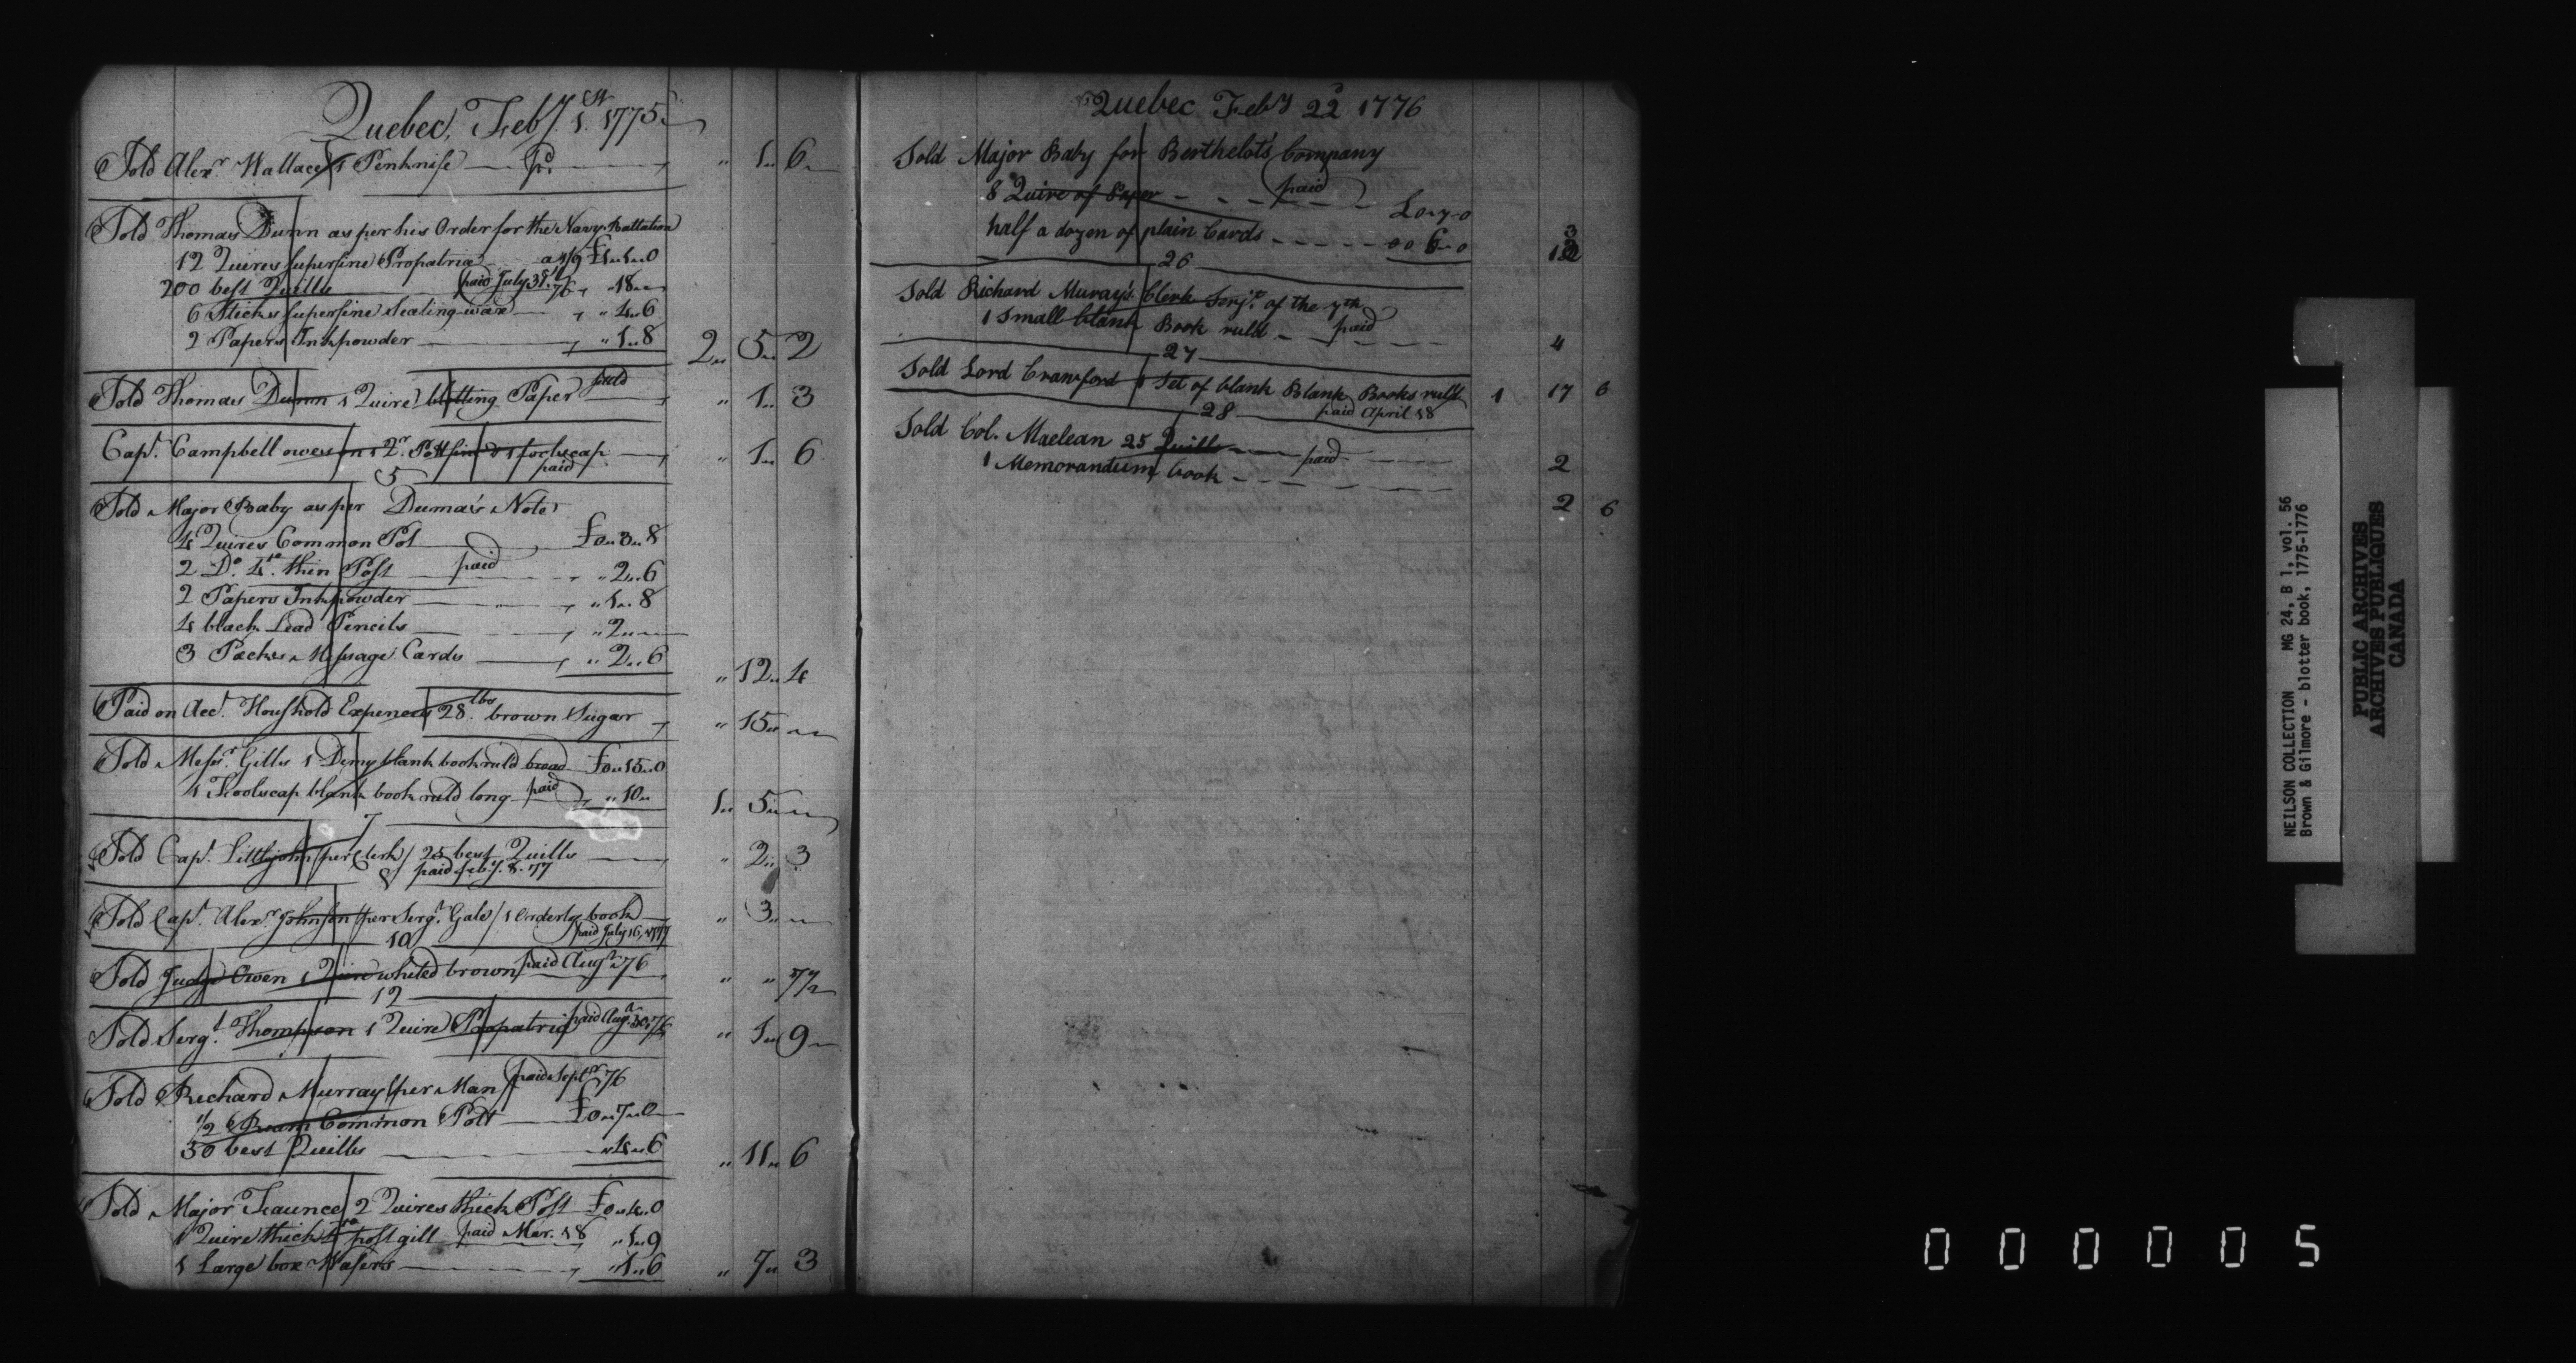 Quebec, Feb.y 1st 1775
Sold Alex.r Wallace 1 Penknife — pd. " 1 6
Sold Thomas Dunn as per his Order for the Navy Battalion
12 Quires superfine Propatria a 1/9 £1 1 0
200 best Quills paid July 31, 76 " 18
6 Sticks superfine Sealing wax " 4 6
2 Papers Inkpowder " 1 8
2 5 2
Sold Thomas Dunn 1 Quire blotting Paper paid " 1 3
Cap.t Campbell owes 1 Qr. Pott & 1 foolscap " 1 6
paid
5
Sold Major Baby as per Duma's Note
4 Quires Common Pot £0 3 8
2 Do. 4to. thin Post paid " 2 6
2 Papers Inkpowder " 1 8
4 black Lead Pencils " 2
3 Packs Message Cards " 2 6
" 12 4
Paid on Acct. Houshold Expences 28 lbs. brown Sugar " 15
Sold Messrs. Gills 1 Demy blank book ruld broad £0 15 0
1 Foolscap blank book ruld long paid " 10
1 5
7
Sold Cap.t Littlejohn /per Clerk/ 25 best Quills " 2 3
paid feb.y 8. 77
Sold Cap.t Alex.r Johnson /per Serg.t Gale/ 1 Orderly book " 3
paid July 16, 1777
10
Sold Judge Owen 1 Quire whited brown paid Aug.t 76 " " 7½
12
Sold Serg.t Thompson 1 Quire Propatria paid Aug. 30, 76 " 1 9
Sold Richard Murray /per Man/ paid Sept.r 76
1/2 Ream Common Pott £0 7 0
50 best Quills " 4 6
" 11 6
Sold Major Faunce 2 Quires thick Post £0 4 0
1 Quire thick 4to post gilt paid Mar. 18 " 1 9
1 Large box Wafers " 1 6
" 7 3
Quebec Feby 22d 1776
Sold Major Baby for Berthelots Company
8 Quire of Paper paid £0 7 0
half a dozen of plain Cards 0 6 0
13
26
Sold Richard Muray's Clerk Serjt. of the 7th
1 small blank Book ruld paid 4
27
Sold Lord Crawford 1 Set of blank Blank Books ruld 1 17 6
paid April 18
28
Sold Col. Maclean 25 Quills paid 2
1 Memorandum book 2 6
NEILSON COLLECTION MG 24, B 1, vol. 56
Brown & Gilmore - blotter book, 1775-1776
PUBLIC ARCHIVES
ARCHIVES PUBLIQUES
CANADA
000005